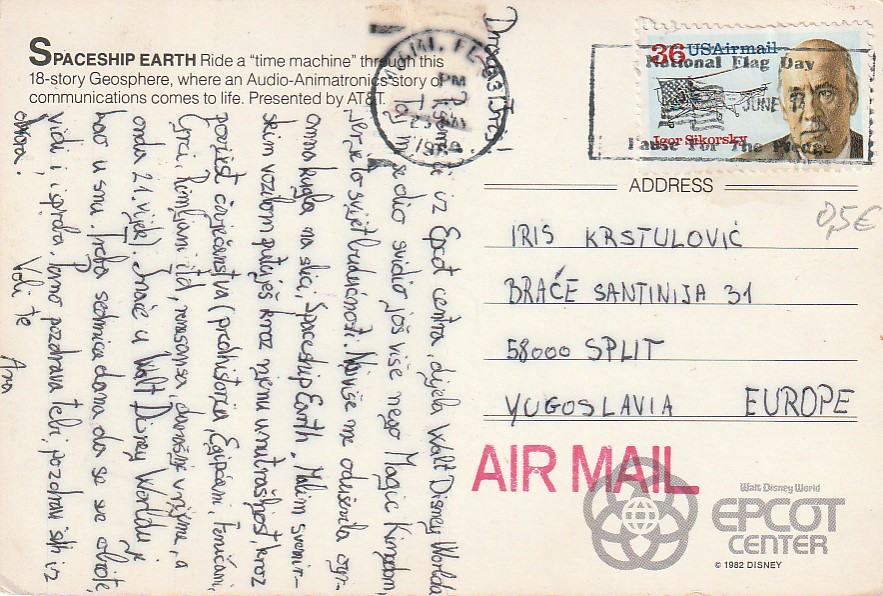 SPACESHIP EARTH Ride a "time machine" through this
18-story Geosphere, where an Audio-Animatronics story of
communications comes to life. Presented by AT&T.
MIAMI, FL
PM
36 USAirmail
Igor Sikorsky
National Flag Day
JUNE 14
Pause For The Pledge
ADDRESS
0,5€
IRIS KRSTULOVIĆ
BRAĆE SANTINIJA 31
58000 SPLIT
YUGOSLAVIA EUROPE
AIR MAIL
Walt Disney World
EPCOT
CENTER
© 1982 DISNEY
Draga Iris!
iz Epcot centra, dijela Walt Disney Worlda
Taj mi se dio svidio još više nego Magic Kingdom,
jer je to svijet budućnosti. Najviše me oduševila ogr-
omna kugla na slici, Spaceship Earth. Malim svemir-
skim vozilom putuješ kroz njenu unutrašnjost, kroz
povijest čovječanstva (prethistorija, Egipćani, Feničani,
Grci, Rimljani itd, renesansa, današnje vrijeme, a
onda 21. vijek). Inače u Walt Disney Worldu je
kao u snu. Treba sedmica dana da se sve obiđe,
vidi i isproba. Puno pozdrava tebi, pozdravi svih iz
dvora.
Voli te Ana